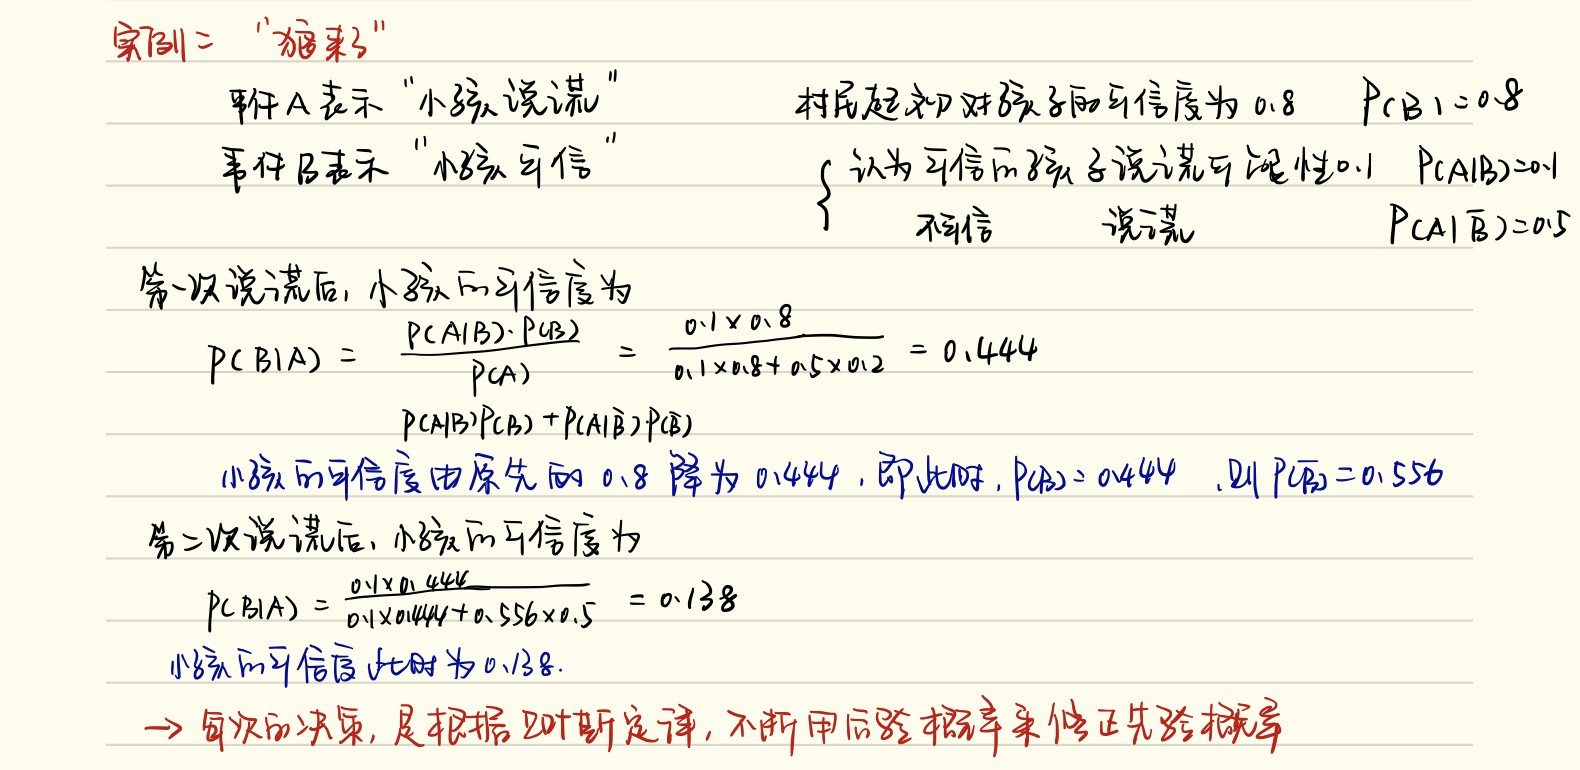 实例二 “狼来了”
事件A表示“小孩说谎” 村民起初对孩子的可信度为0.8 P(B)=0.8
事件B表示“小孩可信” { 认为可信的孩子说谎可能性0.1 P(A|B)=0.1
不可信 说谎 P(A|B̅)=0.5
第一次说谎后，小孩的可信度为
P(B|A) = P(A|B)·P(B) / P(A) = 0.1×0.8 / 0.1×0.8+0.5×0.2 = 0.444
P(A|B)P(B)+P(A|B̅)·P(B̅)
小孩的可信度由原先的0.8降为0.444，即此时，P(B)=0.444，则P(B̅)=0.556
第二次说谎后，小孩的可信度为
P(B|A) = 0.1×0.444 / 0.1×0.444+0.556×0.5 = 0.138
小孩的可信度此时为0.138.
→ 每次的决策，是根据贝叶斯定律，不断用后验概率来修正先验概率